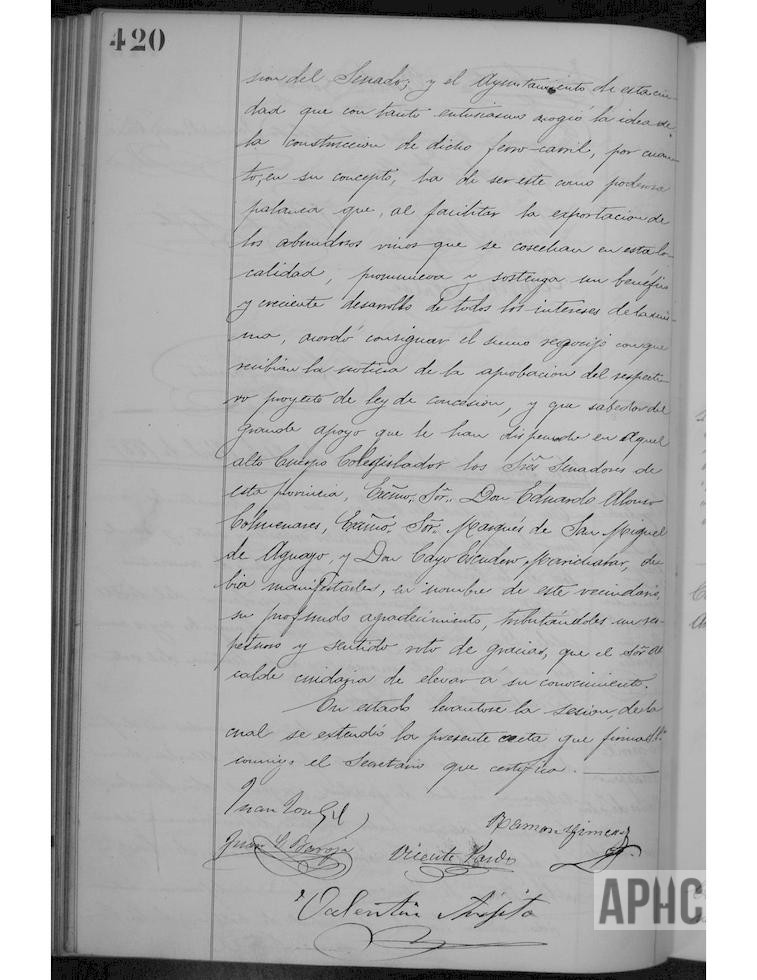 420
sion del Senado; y el Ayuntamiento de esta ciu-
dad que con tanto entusiasmo acogió la idea de
la construccion de dicho ferro-carril, por cuan-
to, en su concepto, ha de ser este como poderosa
palanca que, al facilitar la exportacion de
los abundosos vinos que se cosechan en esta lo-
calidad, promueva y sostenga un benéfico
y creciente desarrollo de todos los intereses de la mis-
ma, acordó consignar el sumo regocijo con que
recibian la noticia de la aprobacion del respecti-
vo proyecto de ley de concesion, y que sabedor del
grande apoyo que le han dispensado en aquel
alto Cuerpo Colegislador los Sres Senadores de
esta provincia, Excmo. Sor. Don Eduardo Alonso
Colmenares, Excmo. Sor. Marqués de San Miguel
de Aguayo, y Don Cayo Escudero Marichalar, de-
bia manifestarles, en nombre de este vecindario,
su profundo agradecimiento, tributándoles un res-
petuoso y sentido voto de gracias, que el Sor Al-
calde cuidaria de elevar á su conocimiento.
En estado levantose la sesion, de la
cual se extendió la presente acta que firman
conmigo el Secretario que certifico.
Juan
Ramon Gimenez
Juan Baroja
Vicente
Valentin
APHC